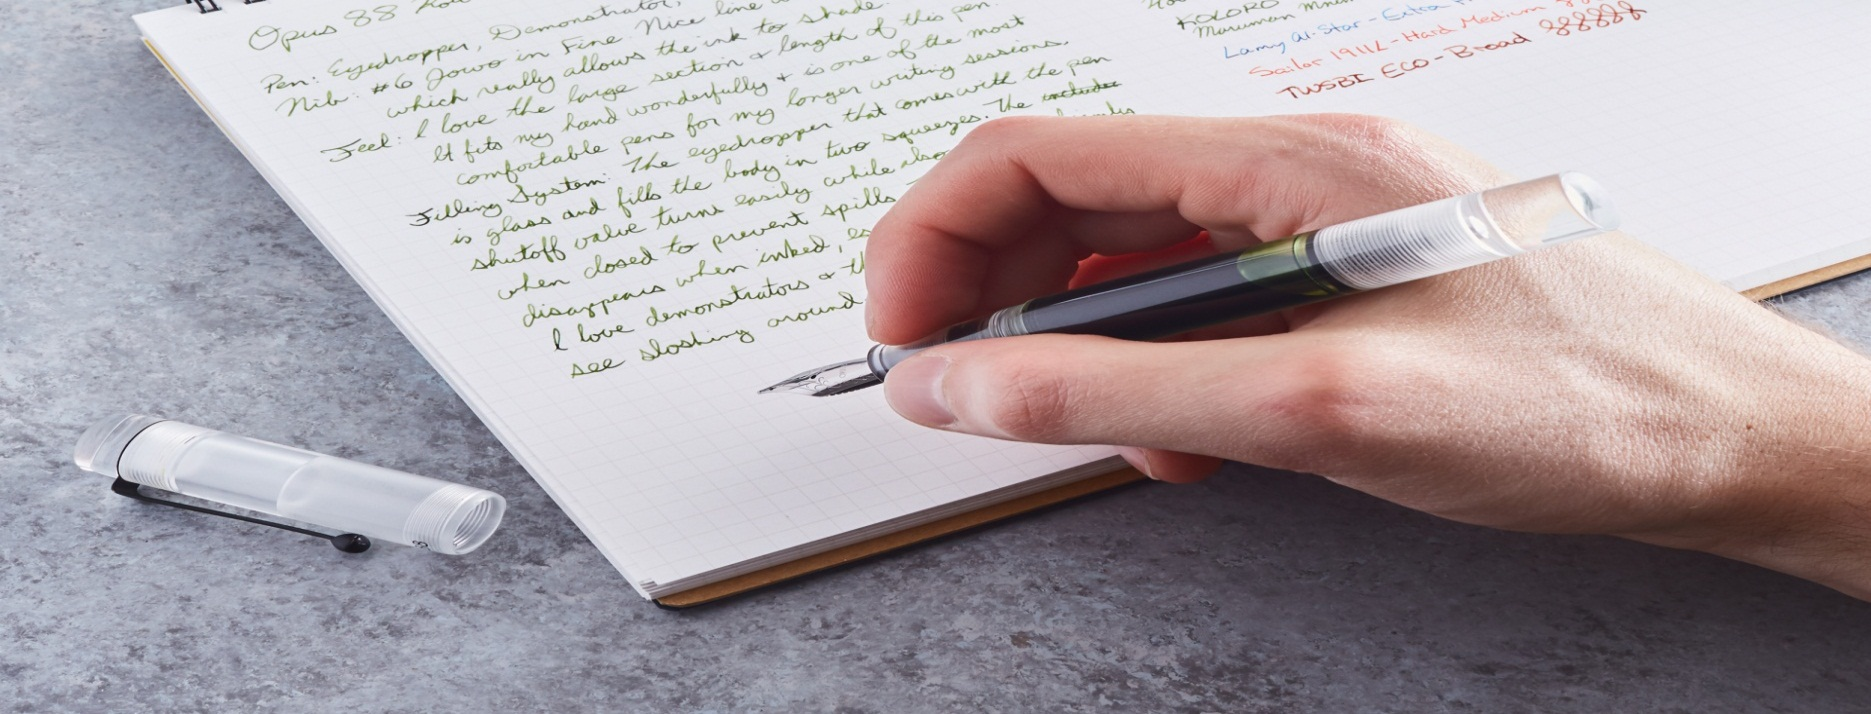 Opus 88
Pen: Eyedropper, Demonstrator,
Nib: #6 Jowo in Fine Nice line
which really allows the ink to shade.
Feel: I love the large section & length of this pen.
It fits my hand wonderfully & is one of the most
comfortable pens for my longer writing sessions.
Filling System: The eyedropper that comes with the pen
is glass and fills the body in two squeezes. The
shutoff valve turns easily while also
when closed to prevent spills
disappears when inked,
I love demonstrators &
see sloshing around
KOLORO
Lamy Al-Star - Extra
Sailor 1911L - Hard Medium
TWSBI ECO - Broad